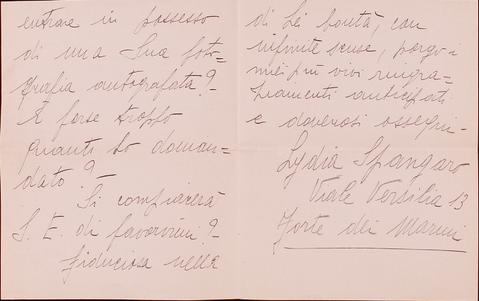 entrare in possesso
di una Sua foto=
grafia autografata?-
È forse troppo
quanto ho doman=
dato?
Si compiacerà
S. E. di favorirmi?-
Fiduciosa nella
di Lei bontà, con
infinite scuse, porgo i
miei più vivi ringra=
ziamenti anticipati
e doverosi ossequi-
Lydia Spangaro
Viale Versilia 13
Forte dei Marmi